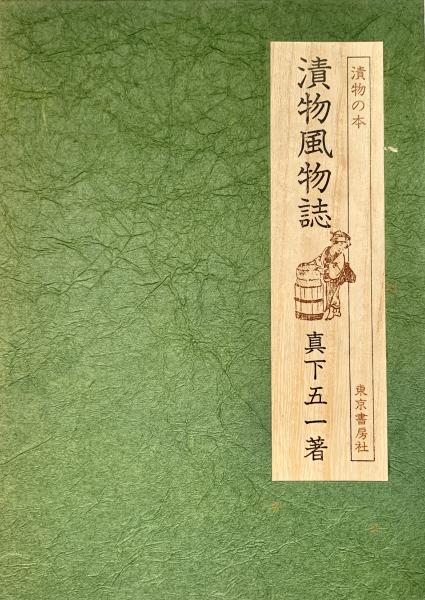 漬物の本
漬物風物誌
真下五一著
東京書房社